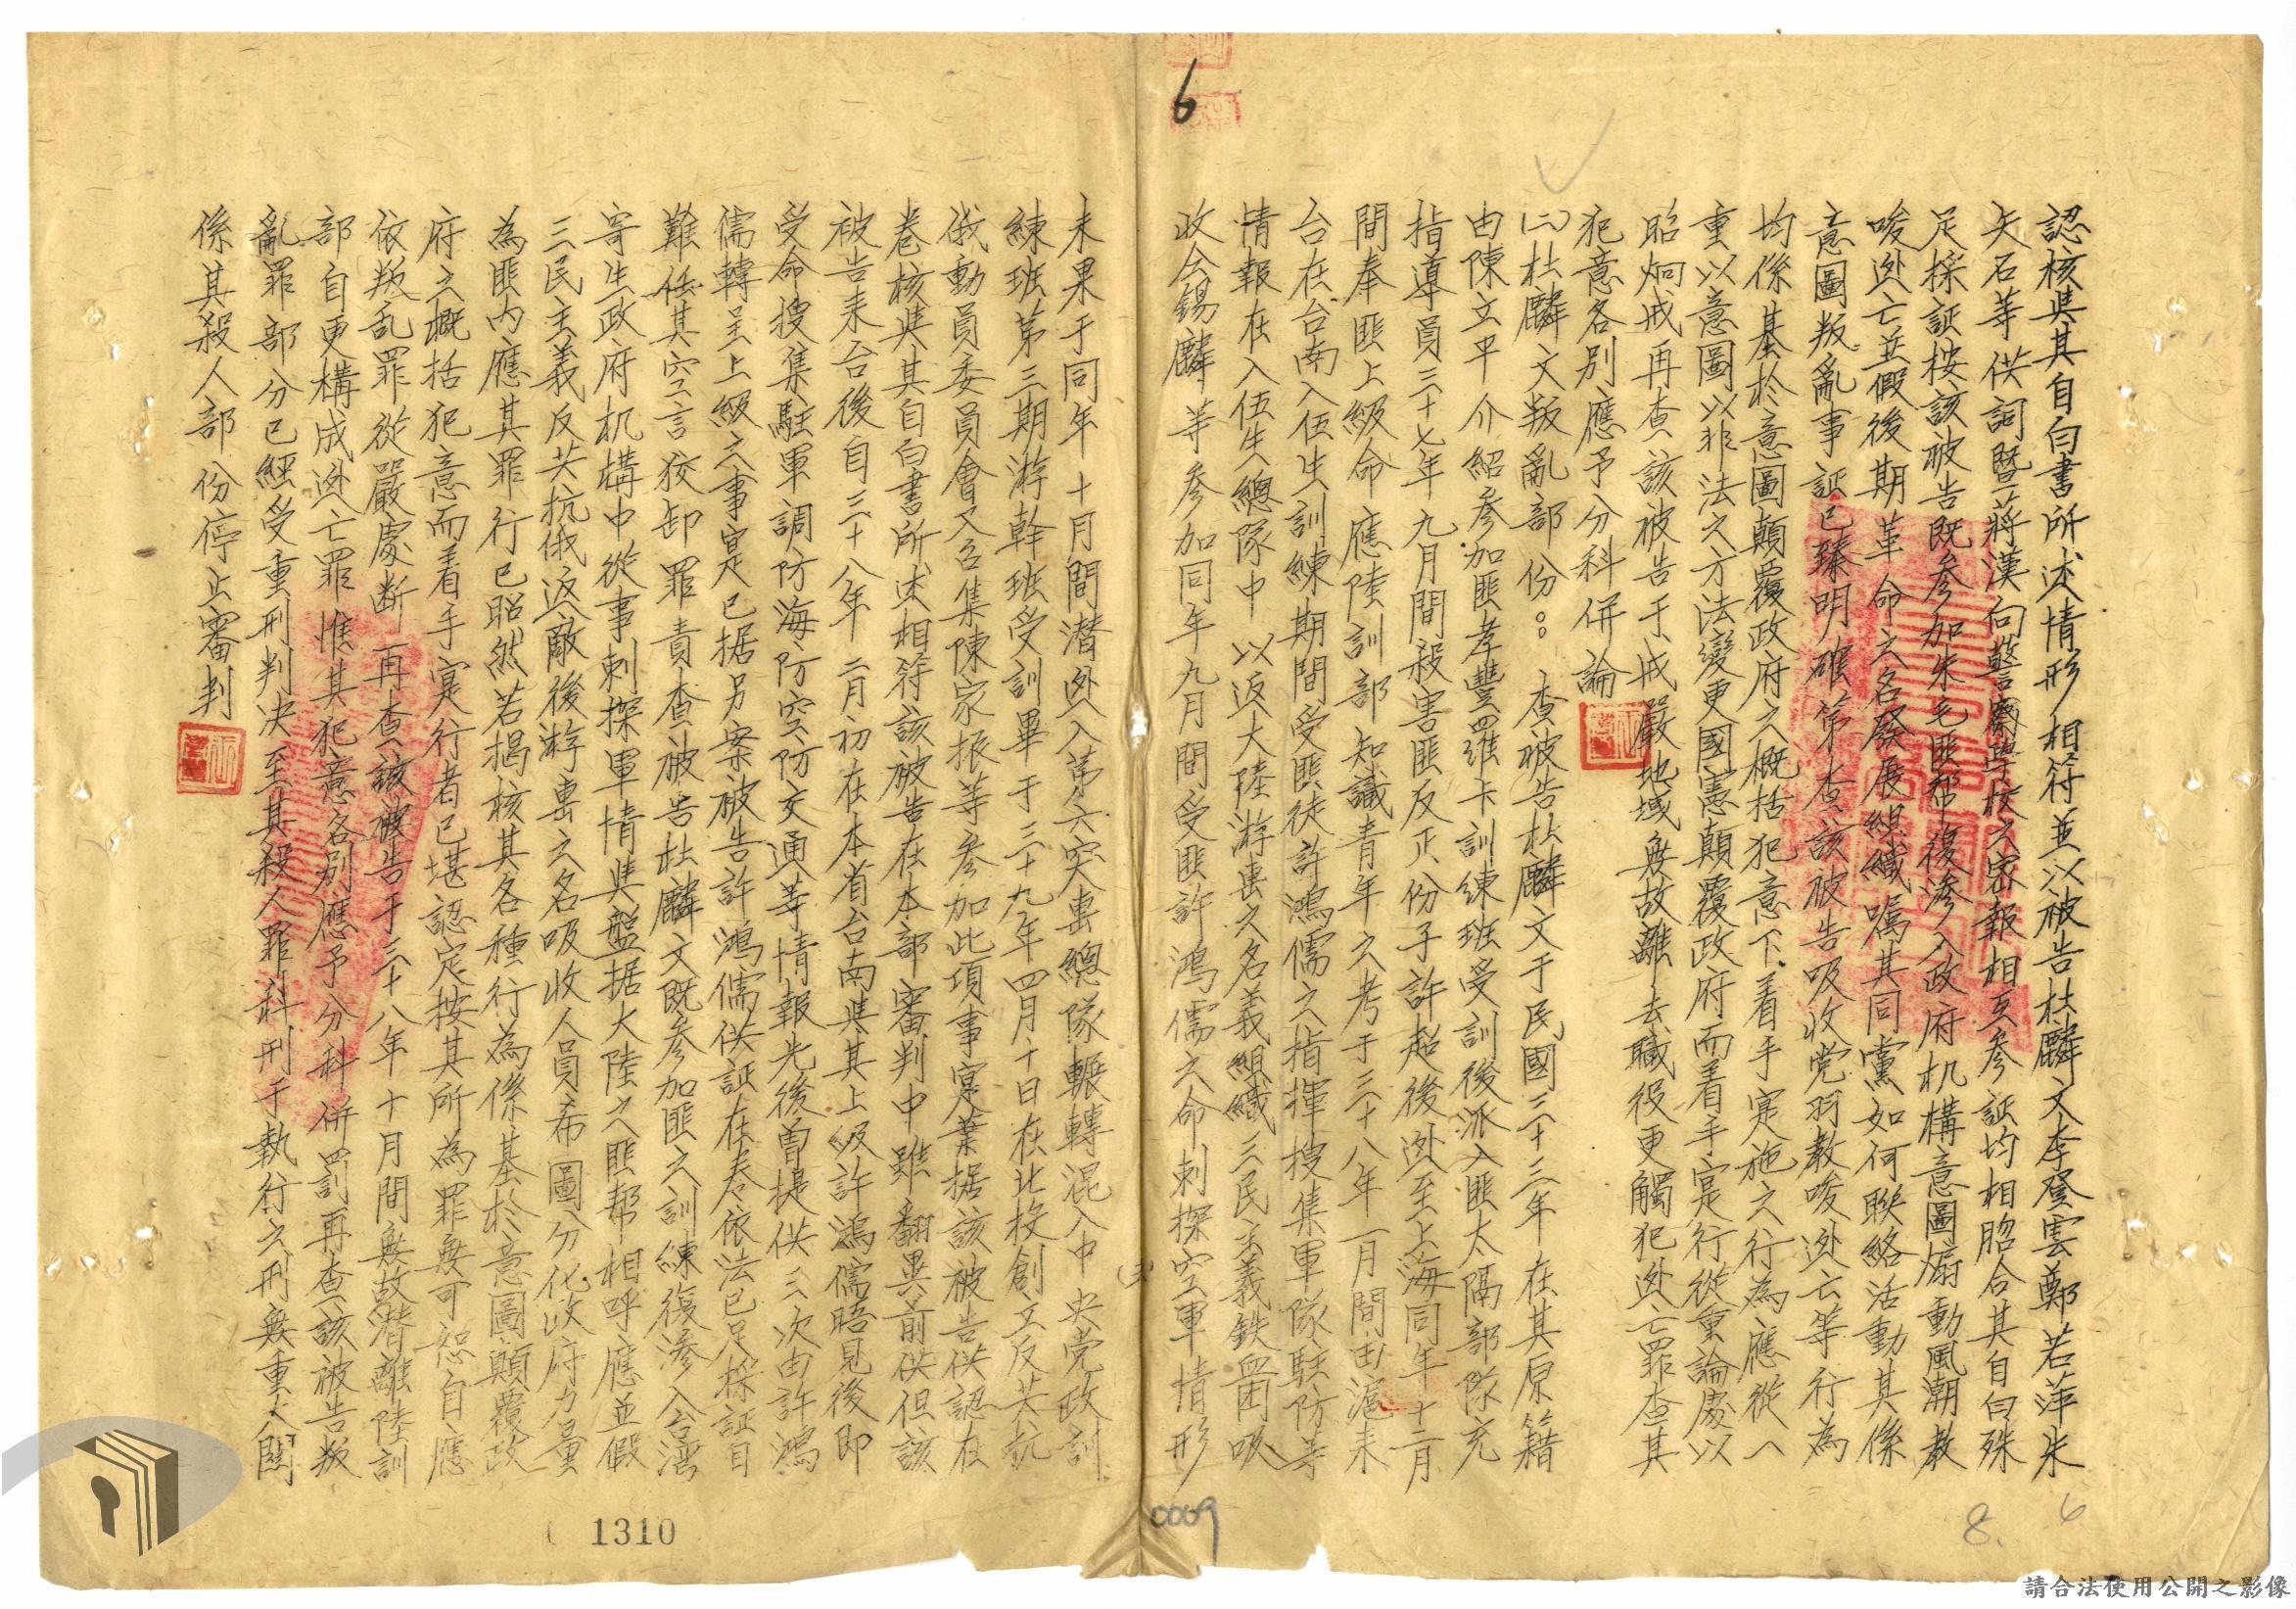 6
認核與其自白書所述情形相符並以被告杜麟文李登雲鄭若萍朱
矢石等供詞暨蔣漢句警
學校之密報相互參証均相脗合其自白殊
足採証按該被告既參加朱毛匪幫復滲入政府机構意圖煽動風潮教
唆逃亡並假後期革命之名發展組織囑其同黨如何聯絡活動其係
意圖叛亂事証已臻明確第查該被告吸收党羽教唆逃亡等行為
均係基於意圖顛覆政府之概括犯意下着手实施之行為應從一
重以意圖以非法之方法變更國憲顛覆政府而着手实行從重論處以
昭炯戒再查該被告于戒嚴地域無故離去職役更觸犯逃亡罪查其
犯意各別應予分科併論
(二)杜麟文叛亂部份：查被告杜麟文于民國三十三年在其原籍
由陳文平介紹參加匪孝豐羅維卡訓練班受訓後派入匪太隔部隊充
指導員三十七年九月間殺害匪反正份子許超後逃至上海同年十二月
間奉匪上級命應陸訓部知識青年之考于三十八年一月間由滬来
台在台南入伍生訓練期間受匪徒許鴻儒之指揮搜集軍隊駐防等
情報在入伍生總隊中以返大陸游击之名義組織三民主義鉄血團吸
收仝錫麟等參加同年九月間受匪許鴻儒之命刺探空軍情形
未果于同年十月間潜逃入第六突击總隊輾轉混入中央党政訓
練班第三期游幹班受訓畢于三十九年四月十日在北投創立反共抗
俄動員委員會又召集陳家振等參加此項事寔業据該被告供認在
卷核與其自白書所述相符該被告在本部審判中雖翻異前供但該
被告来台後自三十八年二月初在本省台南與其上級許鴻儒晤見後即
受命搜集駐軍調防海防空防交通等情報先後曽提供三次由許鴻
儒轉呈上級之事寔已据另案被告許鴻儒供証在卷依法已足採証自
難任其空言狡卸罪責查被告杜麟文既參加匪之訓練復滲入台湾
寄生政府机構中從事刺探軍情與盤据大陸之匪帮相呼應並假
三民主義反共抗俄返敵後游击之名吸收人員希圖分化政府力量
為匪内應其罪行已昭然若揭核其各種行為係基於意圖顛覆政
府之概括犯意而着手寔行者已堪認定按其所為罪無可恕自應
依叛乱罪從嚴處断再查該被告于三十八年十月間無故潜離陸訓
部自更構成逃亡罪惟其犯意各別應予分科併罰再查該被告叛
亂罪部分已經受重刑判決至其殺人罪科刑于執行之刑無重大関
係其殺人部份停止審判
0009
1310
8.
6
請合法使用公開之影像